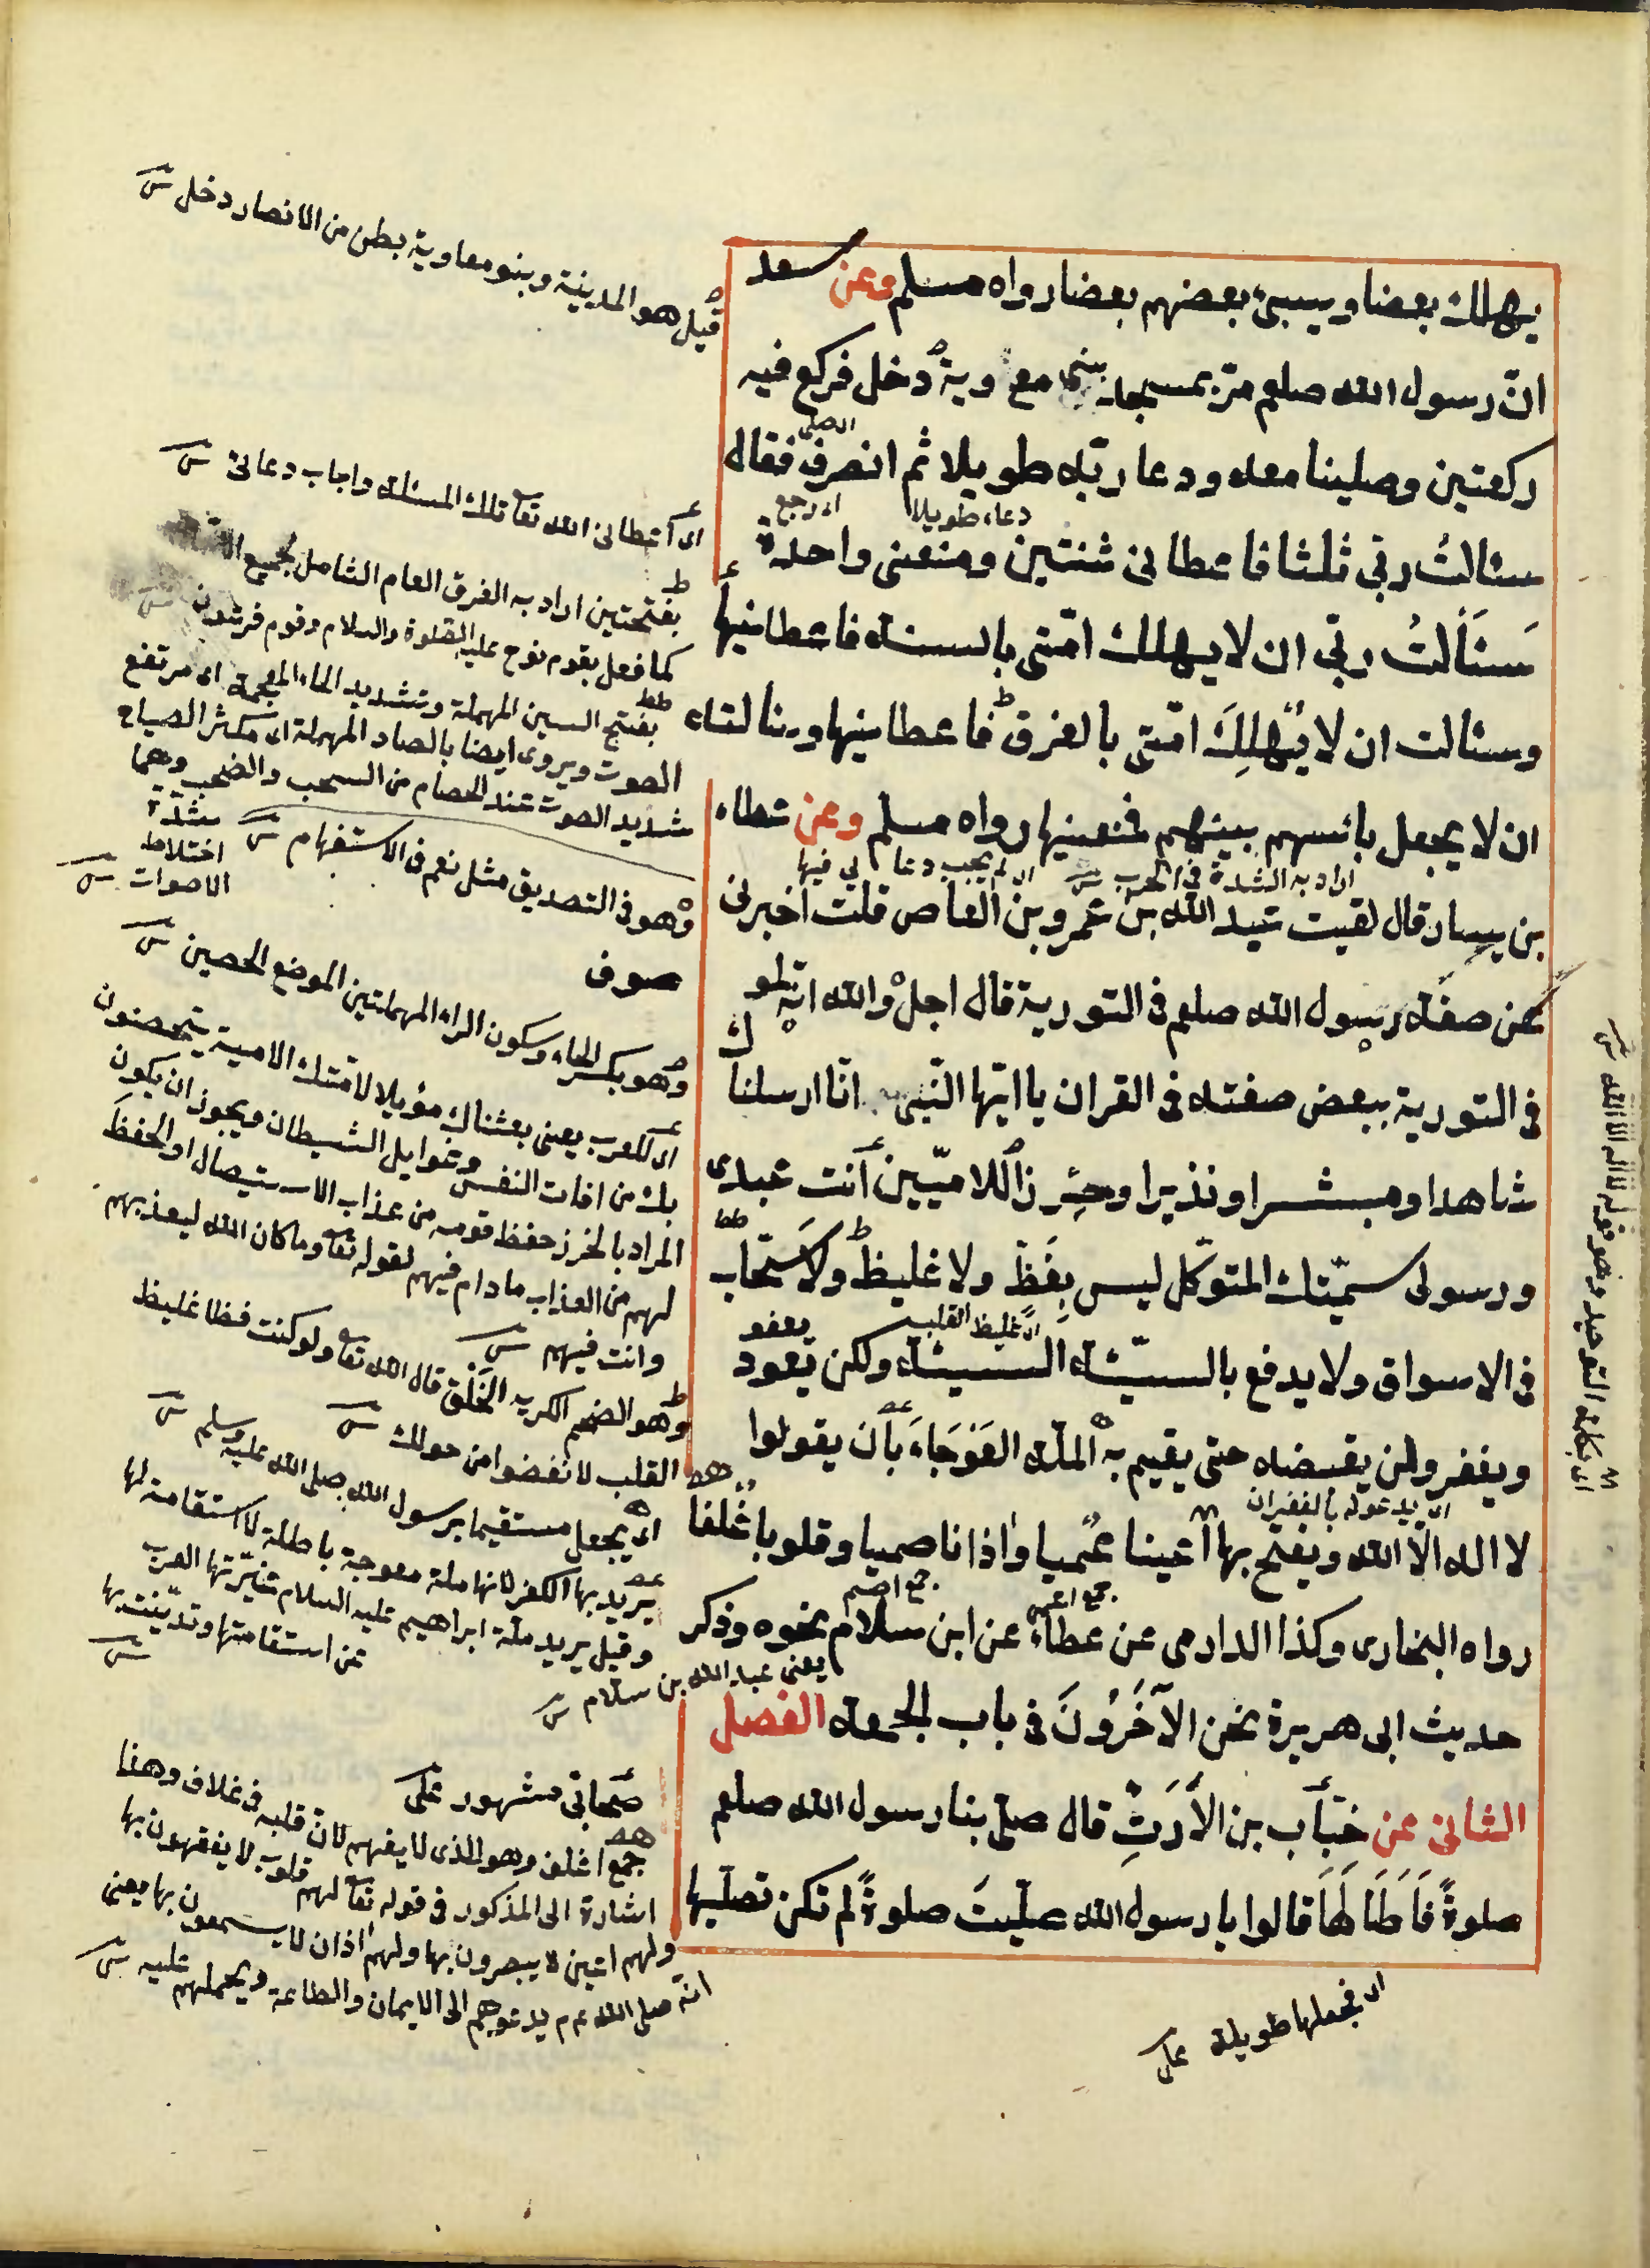 يهلك بعضا ويسبي بعضهم بعضا رواه مسلم وعن سعد
انّ رسول الله صلعم مرّ بمسجد بني معاوية دخل فركع فيه
ركعتين وصلينا معه ودعا ربّه طويلا ثم انصرف فقال
دعاء طويلا
اى رجع
سئالتُ ربّي ثلثا فاعطانى ثنتين ومنعنى واحدة
سَئَالتُ ربّي ان لا يهلك امّتى بالسنة فاعطانيها
وسئالت ان لا يُهلِكَ امّتى بالغرق فاعطانيها وسئالته
ان لا يجعل بائسهم بينهم فمنعنيها رواه مسلم وعن عطاء
اراد به الشدة فى الحرب
اى لم يجب دعائى فيها
بن يسار قال لقيت عبد الله بن عمرو بن العاص قلت اخبرنى
عن صفة رسول الله صلعم فى التورية قال اجل والله انه لمو
صوف
فى التورية ببعض صفته فى القران يا ايّها النّبى انّا ارسلناك
شاهدا ومبشرا ونذيرا وحِرزا للاميّين أنت عبدى
ورسولى سمّيتك المتوكّل ليس بِفَظّ ولا غليظ ولا سَخّاب
اى غليظ القلب
فى الاسواق ولا يدفع بالسيّئة السيئة ولكن يعفو
ويغفر ولن يقبضه حتى يقيم به الملّة العَوْجَاءَ بأن يقولوا
اى يدعو له بالغفران
لا اله الّا الله ويفتح بها أعينا عُميا واذانا صميا وقلوبا غُلفا
جمع اعمى
جمع اصم
رواه البخارى وكذا الدارمى عن عطاء عن ابن سلام نحوه وذكر
يعنى عبد الله بن سلام
حديث ابى هريرة نحن الآخَرُونَ فى باب الجمعة الفصل
الثانى عن خبّاب بن الأَرَتِّ قال صلّى بنا رسول الله صلعم
صلوةً فَاَطَالَهَا قالوا يا رسول الله صلّيتَ صلوةً لم تكن تصلّيها
اى فجعلها طويلة
قيل هو المدينة وبنو معاوية بطن من الانصار دخل
اى أعطانى الله تعا تلك المسئلة واجاب دعائى
بفتحتين اراد به الغرق العام الشامل لجميع
كما فعل بقوم نوح عليه الصلوة والسلام وقوم فرعون
بفتح السين المهملة وتشديد الخاء المعجمة اى مرتفع
الصوت ويروى ايضا بالصاد المهملة اى مكثر الصياح
شديد الصوت عند الخصام من السخب والصخب وهما
شدّة
اختلاط
الاصوات
وهو فى التصديق مثل نعم فى الاستفهام
وهو بكسر الحاء وسكون الراء المهملتين الموضع الحصين
اى للعرب يعنى بعثناك مؤيلا لامّتك الامية يتحصنون
بك من افات النفس وغوايل الشيطان ويجوز ان يكون
المراد بالحرز حفظ قومه من عذاب الاستيصال او الحفظ
لهم من العذاب ما دام فيهم لقوله تعا وما كان الله ليعذبهم
وانت فيهم
وهو الضخم الكريه الخَلق قال الله تعا ولو كنت فظا غليظ
القلب لانفضوا من حولك
اى يجعل مستقيما برسول الله صلى الله عليه وسلم
يريد بها الكفر لانها ملة معوجة باطلة لا استقامة لها
وقيل يريد ملة ابراهيم عليه السلام غيّرتها العرب
عن استقامتها وتدينت بها
صحابى مشهور
جمع اغلف وهو الذى لا يفهم لان قلبه فى غلاف وهنا
اشارة الى المذكور فى قوله تعا لهم قلوب لا يفقهون بها
ولهم اعين لا يبصرون بها ولهم اذان لا يسمعون بها يعنى
انه صلى الله عم يدعوهم الى الايمان والطاعة ويحملهم عليه